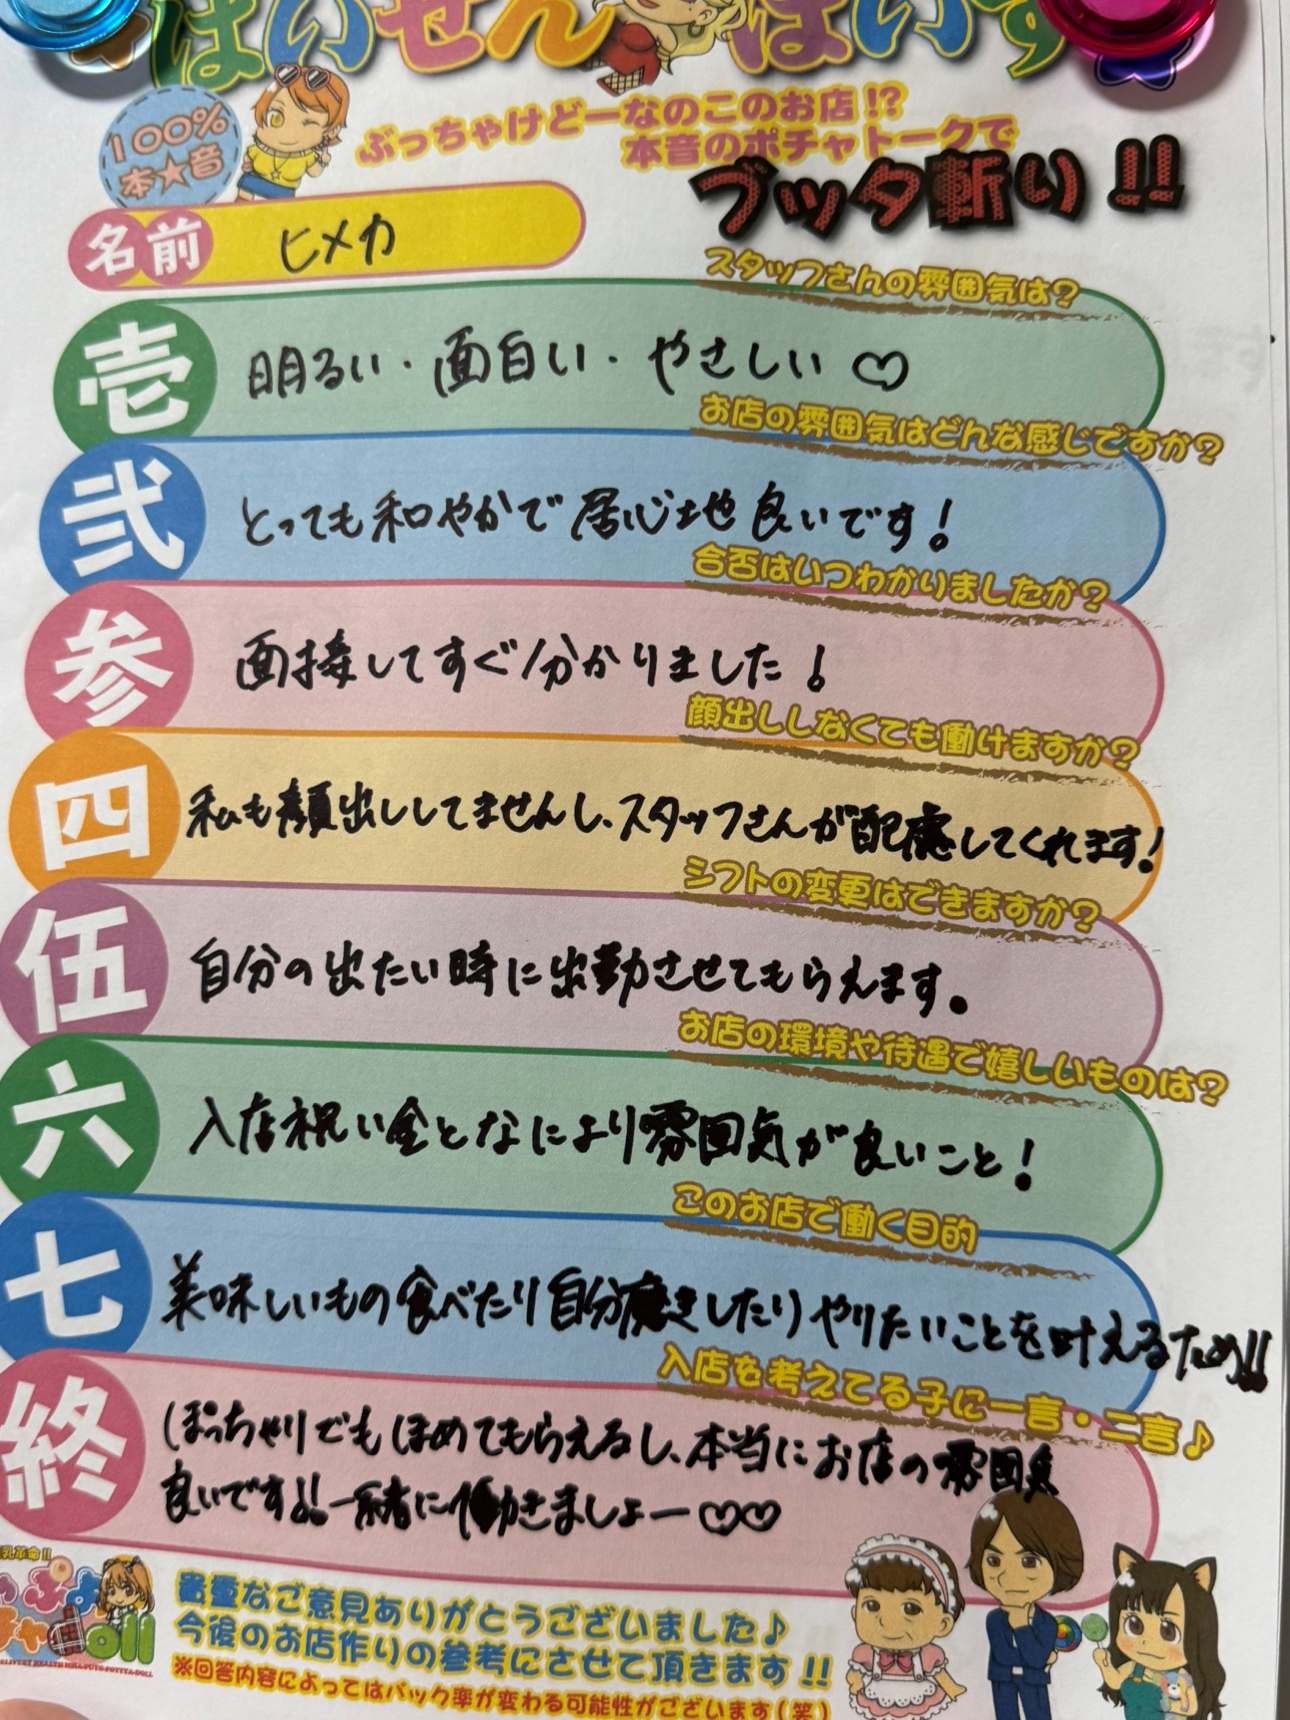 ぱいせんぼいす
100%
本★音
ぶっちゃけどーなのこのお店!?
本音のポチャトークで
ブッタ斬り!!
名前 ヒメカ
スタッフさんの雰囲気は?
壱 明るい・面白い・やさしい♡
お店の雰囲気はどんな感じですか?
弐 とっても和やかで居心地良いです!
合否はいつわかりましたか?
参 面接してすぐ分かりました!
顔出ししなくても働けますか?
四 私も顔出ししてませんし、スタッフさんが配慮してくれます!
シフトの変更はできますか?
伍 自分の出たい時に出勤させてもらえます。
お店の環境や待遇で嬉しいものは?
六 入店祝い金となにより雰囲気が良いこと!
このお店で働く目的
七 美味しいもの食べたり自分磨きしたりやりたいことを叶えるため!!
入店を考えてる子に一言・二言♪
終 ぽっちゃりでもほめてもらえるし、本当にお店の雰囲気
良いです♪!!一緒に働きましょー♡♡
貴重なご意見ありがとうございました♪
今後のお店作りの参考にさせて頂きます!!
※回答内容によってはバック率が変わる可能性がございます(笑)